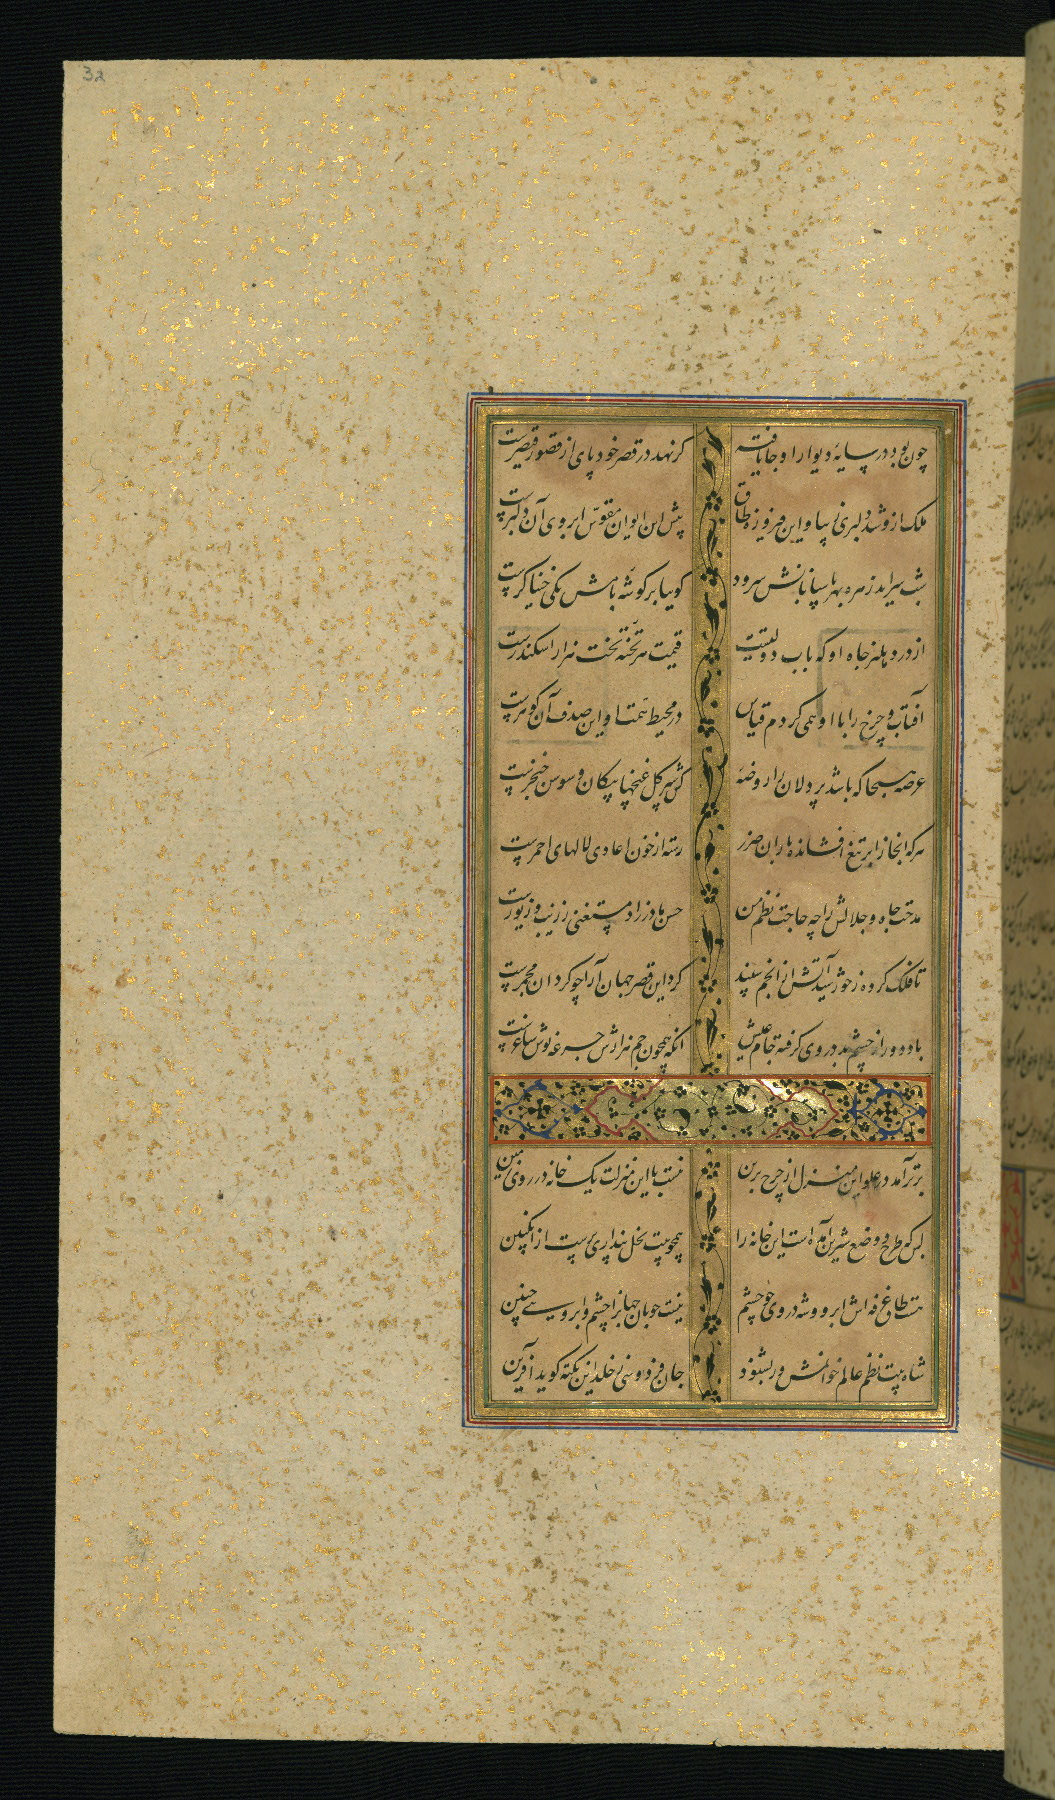 32
چون بود در سایهٔ دیوار او جا یافته
گر نهد در قصر خود پای از قصور قیصرست
ملک ازو شد دلبری زیبا و این فیروزه طاق
پیش این ایوان مقوس ابروی آن دلبرست
شب سراید زهره بهر پاسبانانش سرود
گوییا بر گوشهٔ بامش یکی خنیاگرست
از در دهلیز جاه او که باب دولتیست
قیمت هر تخته تخت هزار اسکندرست
آفتاب و چرخ را با او همی کردم قیاس
در محیط همت او این صدف آن گوهرست
عرصه هیجا که باشد پردلان را روضهٔ
کش سپر گل غنچها پیکان و سوسن خنجرست
هر کجا از ابر تیغ افشانده باران ضرر
رسته از خون اعادی لالهای احمرست
مدحت جاه و جلالش را چه حاجت نظم من
حسن مادرزاد مستغنی ز زیب و زیورست
تا فلک کرده ز خورشید آتش از انجم سپند
گرد این قصر جهان آرا چو گردان مجمرست
باد دور از چشم بد در وی گرفته جام عیش
آنکه همچون جم هزارش جرعه نوش ساغرست
برتر آمد در علو این منزل از چرخ برین
نیست با این منزلت یک خانه در روی زمین
بس که طرح و وضع شیرین آمدست این خانه را
همچو بیت نحل پنداری پرست از انگبین
هست طاق غرفه اش ابرو و شه در وی چو چشم
نیست خوبان جهانرا چشم و ابرویی چنین
شاه بیت نظم عالم خوانمش ور بشنود
جان فردوسی ز خلد این نکته گوید آفرین